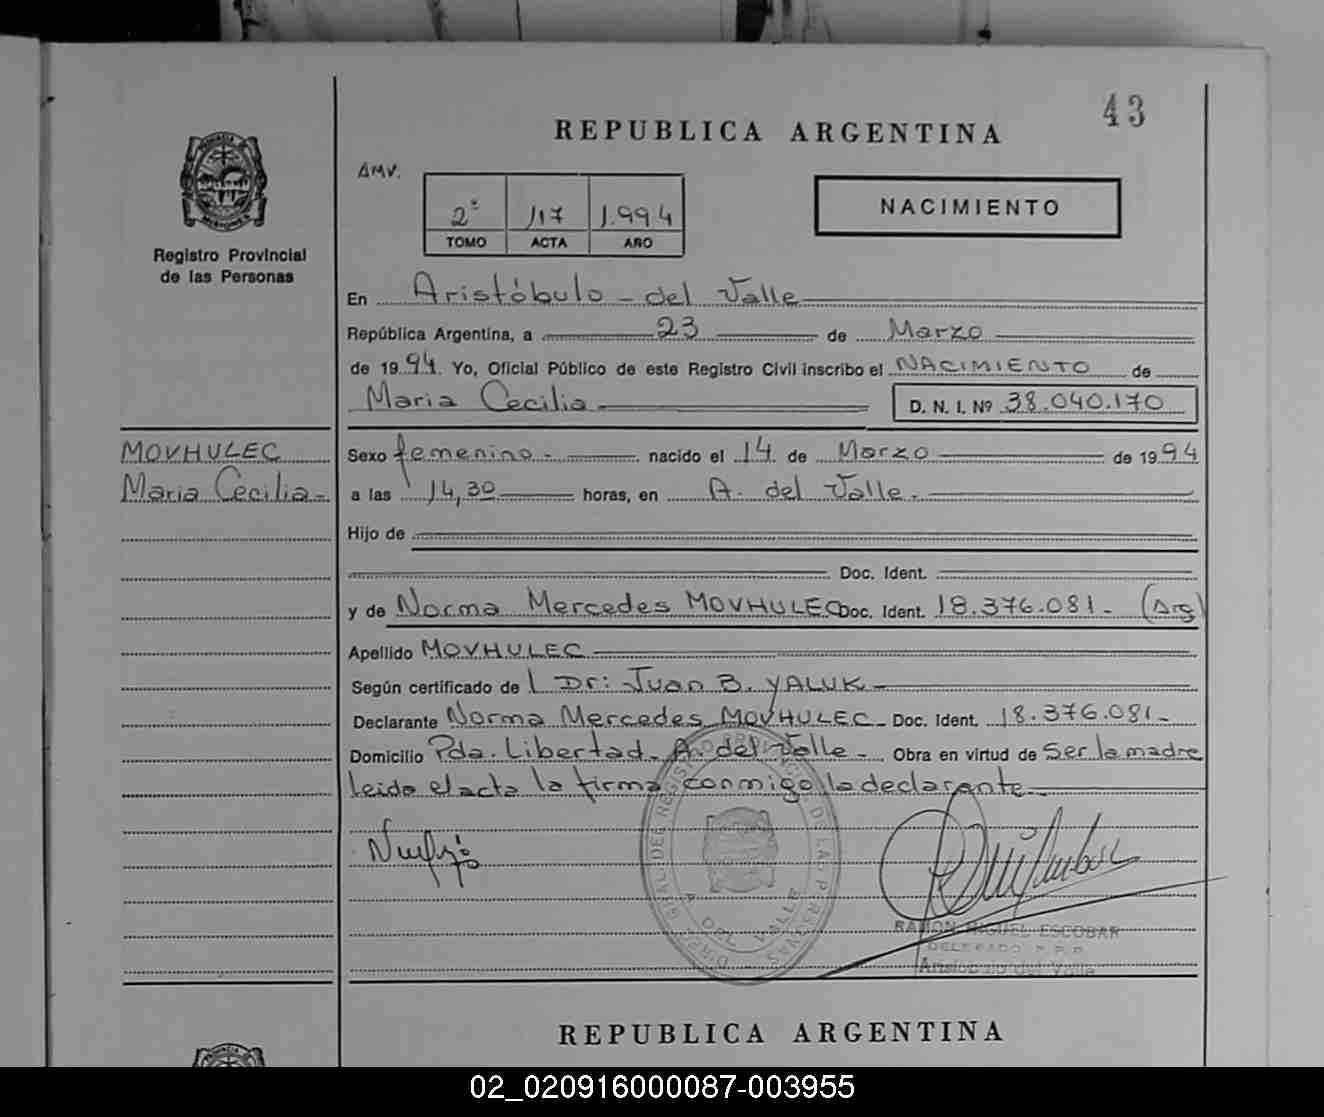 43
REPUBLICA ARGENTINA
AMV.
2º 117 1.994
TOMO ACTA AÑO
NACIMIENTO
PROVINCIA DE MISIONES
Registro Provincial
de las Personas
En Aristóbulo - del Valle
República Argentina, a 23 de Marzo
de 1994. Yo, Oficial Público de este Registro Civil inscribo el NACIMIENTO de
Maria Cecilia D. N. I. Nº 38.040.170
MOVHULEC
Maria Cecilia-
Sexo femenino - nacido el 14 de Marzo de 1994
a las 14,30 horas, en A. del Valle.
Hijo de
Doc. Ident.
y de Norma Mercedes MOVHULEC Doc. Ident. 18.376.081- (Arg)
Apellido MOVHULEC
Según certificado de l Dr: Juan B. YALUK-
Declarante Norma Mercedes MOVHULEC- Doc. Ident. 18.376.081-
Domicilio Pda. Libertad- A. del Valle- Obra en virtud de Ser la madre
leida el acta la firma conmigo la declarante-
A. DEL VALLE
RAMON MIGUEL ESCOBAR
DELEGADO R.P.P.
Aristobulo del Valle
REPUBLICA ARGENTINA
02_020916000087-003955